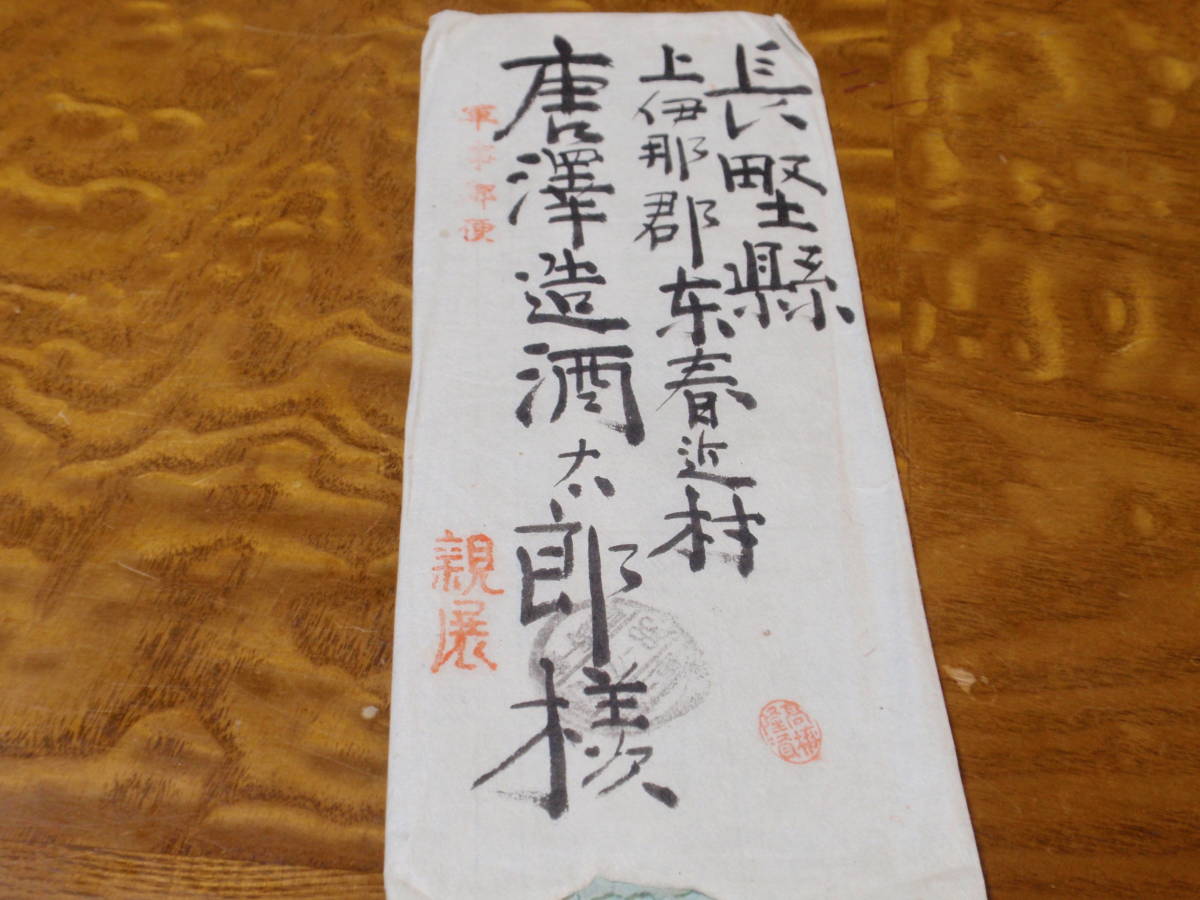 長野縣
上伊那郡东春近村
唐澤造酒太郎様
軍事郵便
親展